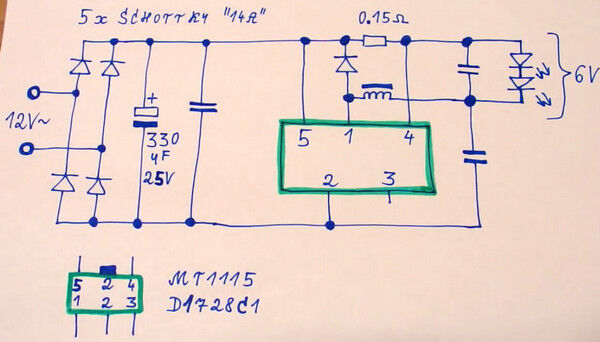 5 x SCHOTTKY "14A"
0.15Ω
6V
12V~
+
330
µF
25V
5 1 4
2 3
5 2 4
1 2 3
MT1115
D1728C1